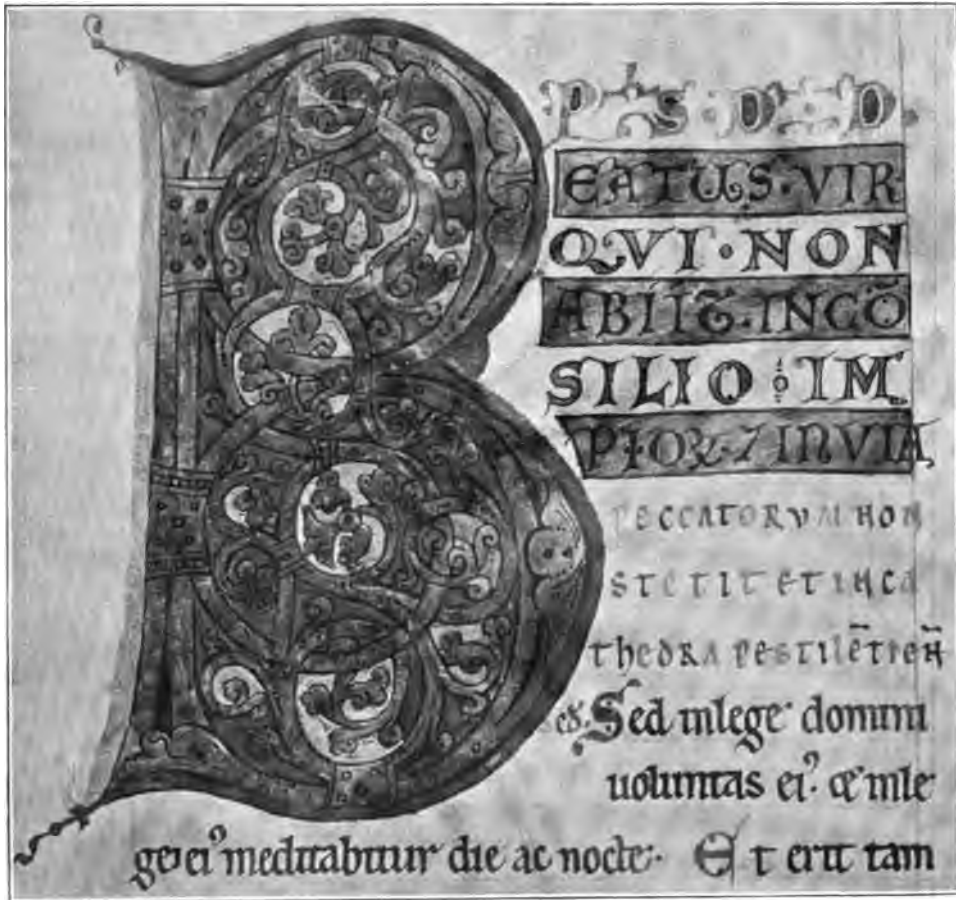 B
EATUS·VIR
QVI·NON
ABIIT·INCŌ
SILIO IM
PIOꝜ·7 INVIA
PECCATORVM NON
STETIT ET INCA
ThEDRA PESTILĒTIE
Sed inlege domini
uoluntas ei⁹·
ge ei⁹ meditabitur die ac nocte· Et erit tam